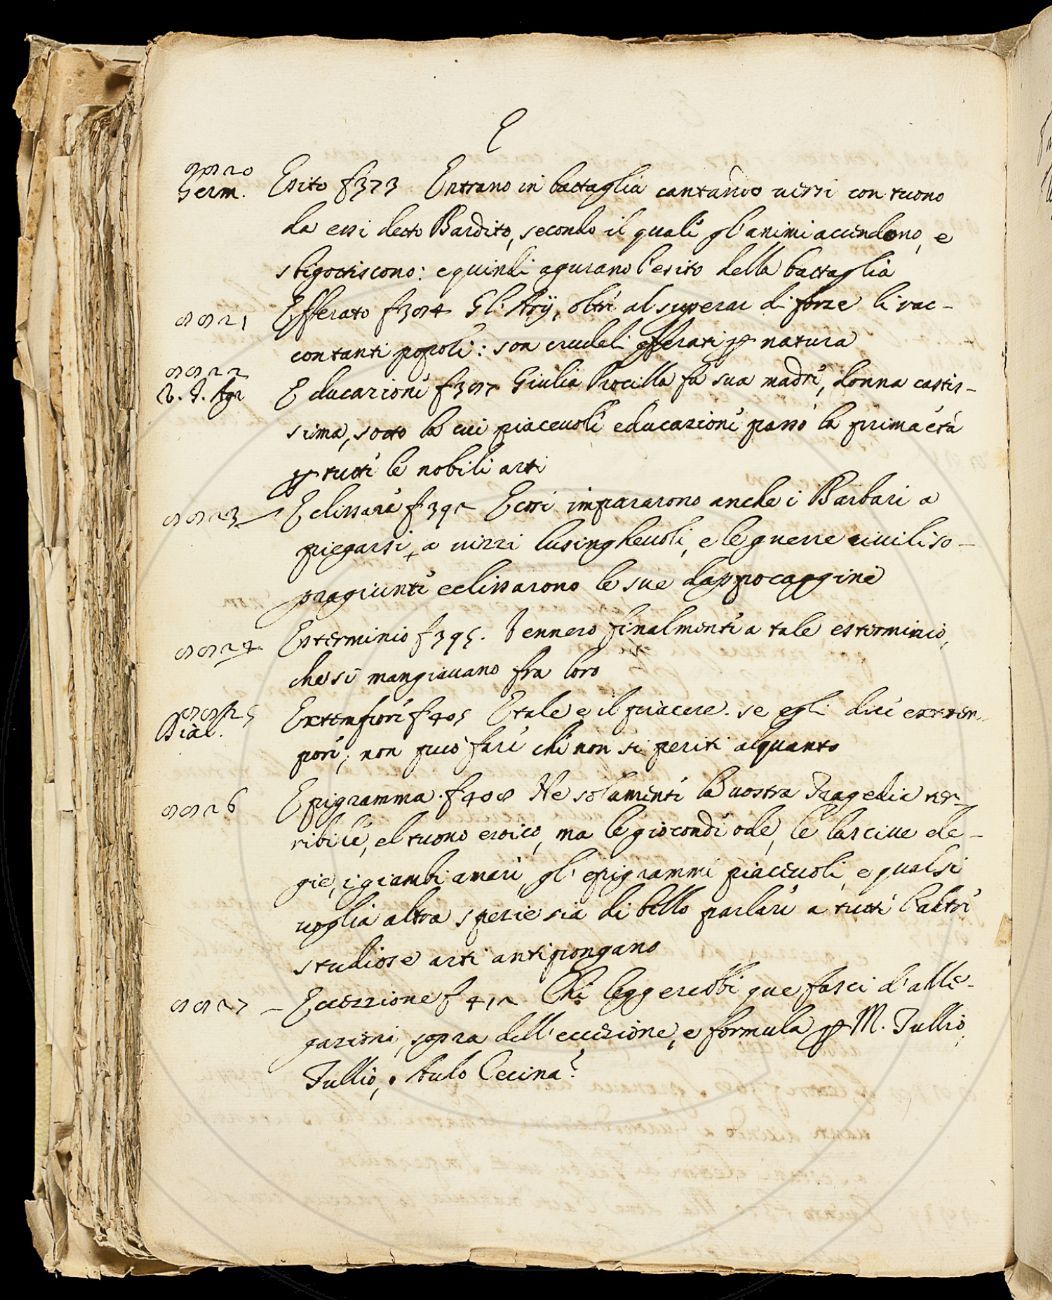 E
8820 Esito f 373 Entrano in battaglia cantando versi con tuono
Germ. da essi detto Bardito, secondo il quale gl'animi accendono, e
sbigottiscono: e quindi agurano l'esito della battaglia
8821 Efferato f 384 Gl'Arij, oltre al superar di forze li rac-
contanti popoli: son crudeli efferati ꝑ natura
8822
V. I. Agr Educazione f 387 Giulia Procilla fu sua madre, donna castis-
sima, sotto la cui piacevole educazione passò la prima età
ꝑ tutte le nobili arti
8823 Eclissare f 392 Ecosi impararono anche i Barbari a
piegarsi a vizzi lusinghevoli, e le guerre civili so-
pragiunte eclissarono le sue dappocaggine
8824 Esterminio f 395. Vennero finalmente a tale esterminio,
che si mangiavano fra loro
8825
Dial. Extempore f 405 E tale e il piacere. se egli dice extem-
pore, non può fare che non si periti alquanto
8826 Epigramma f 408 Ne solamente la vostra Tragedia ter-
ribile, el tuono eroico, ma le gioconde ode, le lascive ele-
gie, i giambi amari gl'epigrammi piacevoli, e qualsi
voglia altra sperie sia di bello parlare a tutte l'altre
studiose arti antipongano
8827 Eccezzione f 412 Chi leggerebbi que fasci d'alle-
gazioni, sopra dell'eccezione, e formula ꝑ M. Tullio,
Tullio, Aulo Cecina?